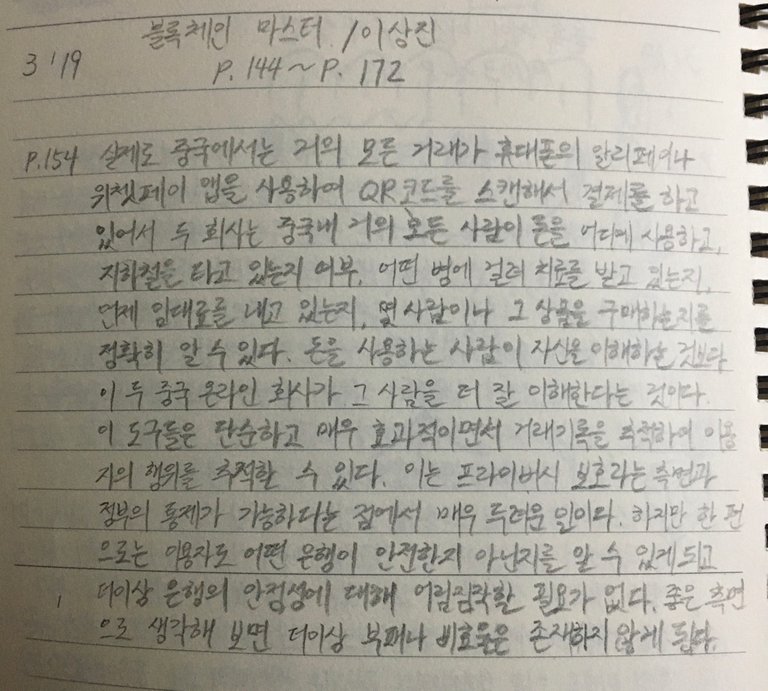 블록체인 마스터 / 이상진
3 '19 P. 144 ~ P. 172
P.154 실제로 중국에서는 거의 모든 거래가 휴대폰의 알리페이나
위챗페이 앱을 사용하여 QR코드를 스캔해서 결제를 하고
있어서 두 회사는 중국내 거의 모든 사람이 돈을 어디에 사용하고,
지하철을 타고 있는지 여부, 어떤 병에 걸려 치료를 받고 있는지,
언제 임대료를 내고 있는지, 몇 사람이나 그 상품을 구매하는지를
정확히 알 수 있다. 돈을 사용하는 사람이 자신을 이해하는 것보다
이 두 중국 온라인 회사가 그 사람을 더 잘 이해한다는 것이다.
이 도구들은 단순하고 매우 효과적이면서 거래기록을 추적하여 이용
자의 행위를 추적할 수 있다. 이는 프라이버시 보호라는 측면과
정부의 통제가 가능하다는 점에서 매우 두려운 일이다. 하지만 한 편
으로는 이용자도 어떤 은행이 안전한지 아닌지를 알 수 있게 되고
더이상 은행의 안정성에 대해 어림짐작할 필요가 없다. 좋은 측면
으로 생각해 보면 더이상 부패나 비효율은 존재하지 않게 된다.